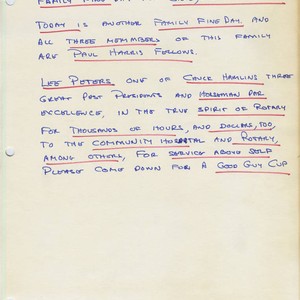 TODAY IS ANOTHER FAMILY FINE DAY. AND
ALL THREE MEMEBERS OF THIS FAMILY
ARE PAUL HARRIS FELLOWS.
LEE PETERS ONE OF CANCE HAMLINS THREE
GREAT PAST PRESIDENTS AND HORSEMAN PAR
EXCELLENCE, IN THE TRUE SPIRIT OF ROTARY
FOR THOUSANDS OF HOURS, AND DOLLARS, TOO,
TO THE COMMUNITY HOSPITAL AND ROTARY,
AMONG OTHERS, FOR SERVICE ABOVE SELF
PLEASE COME DOWN FOR A GOOD GUY CUP